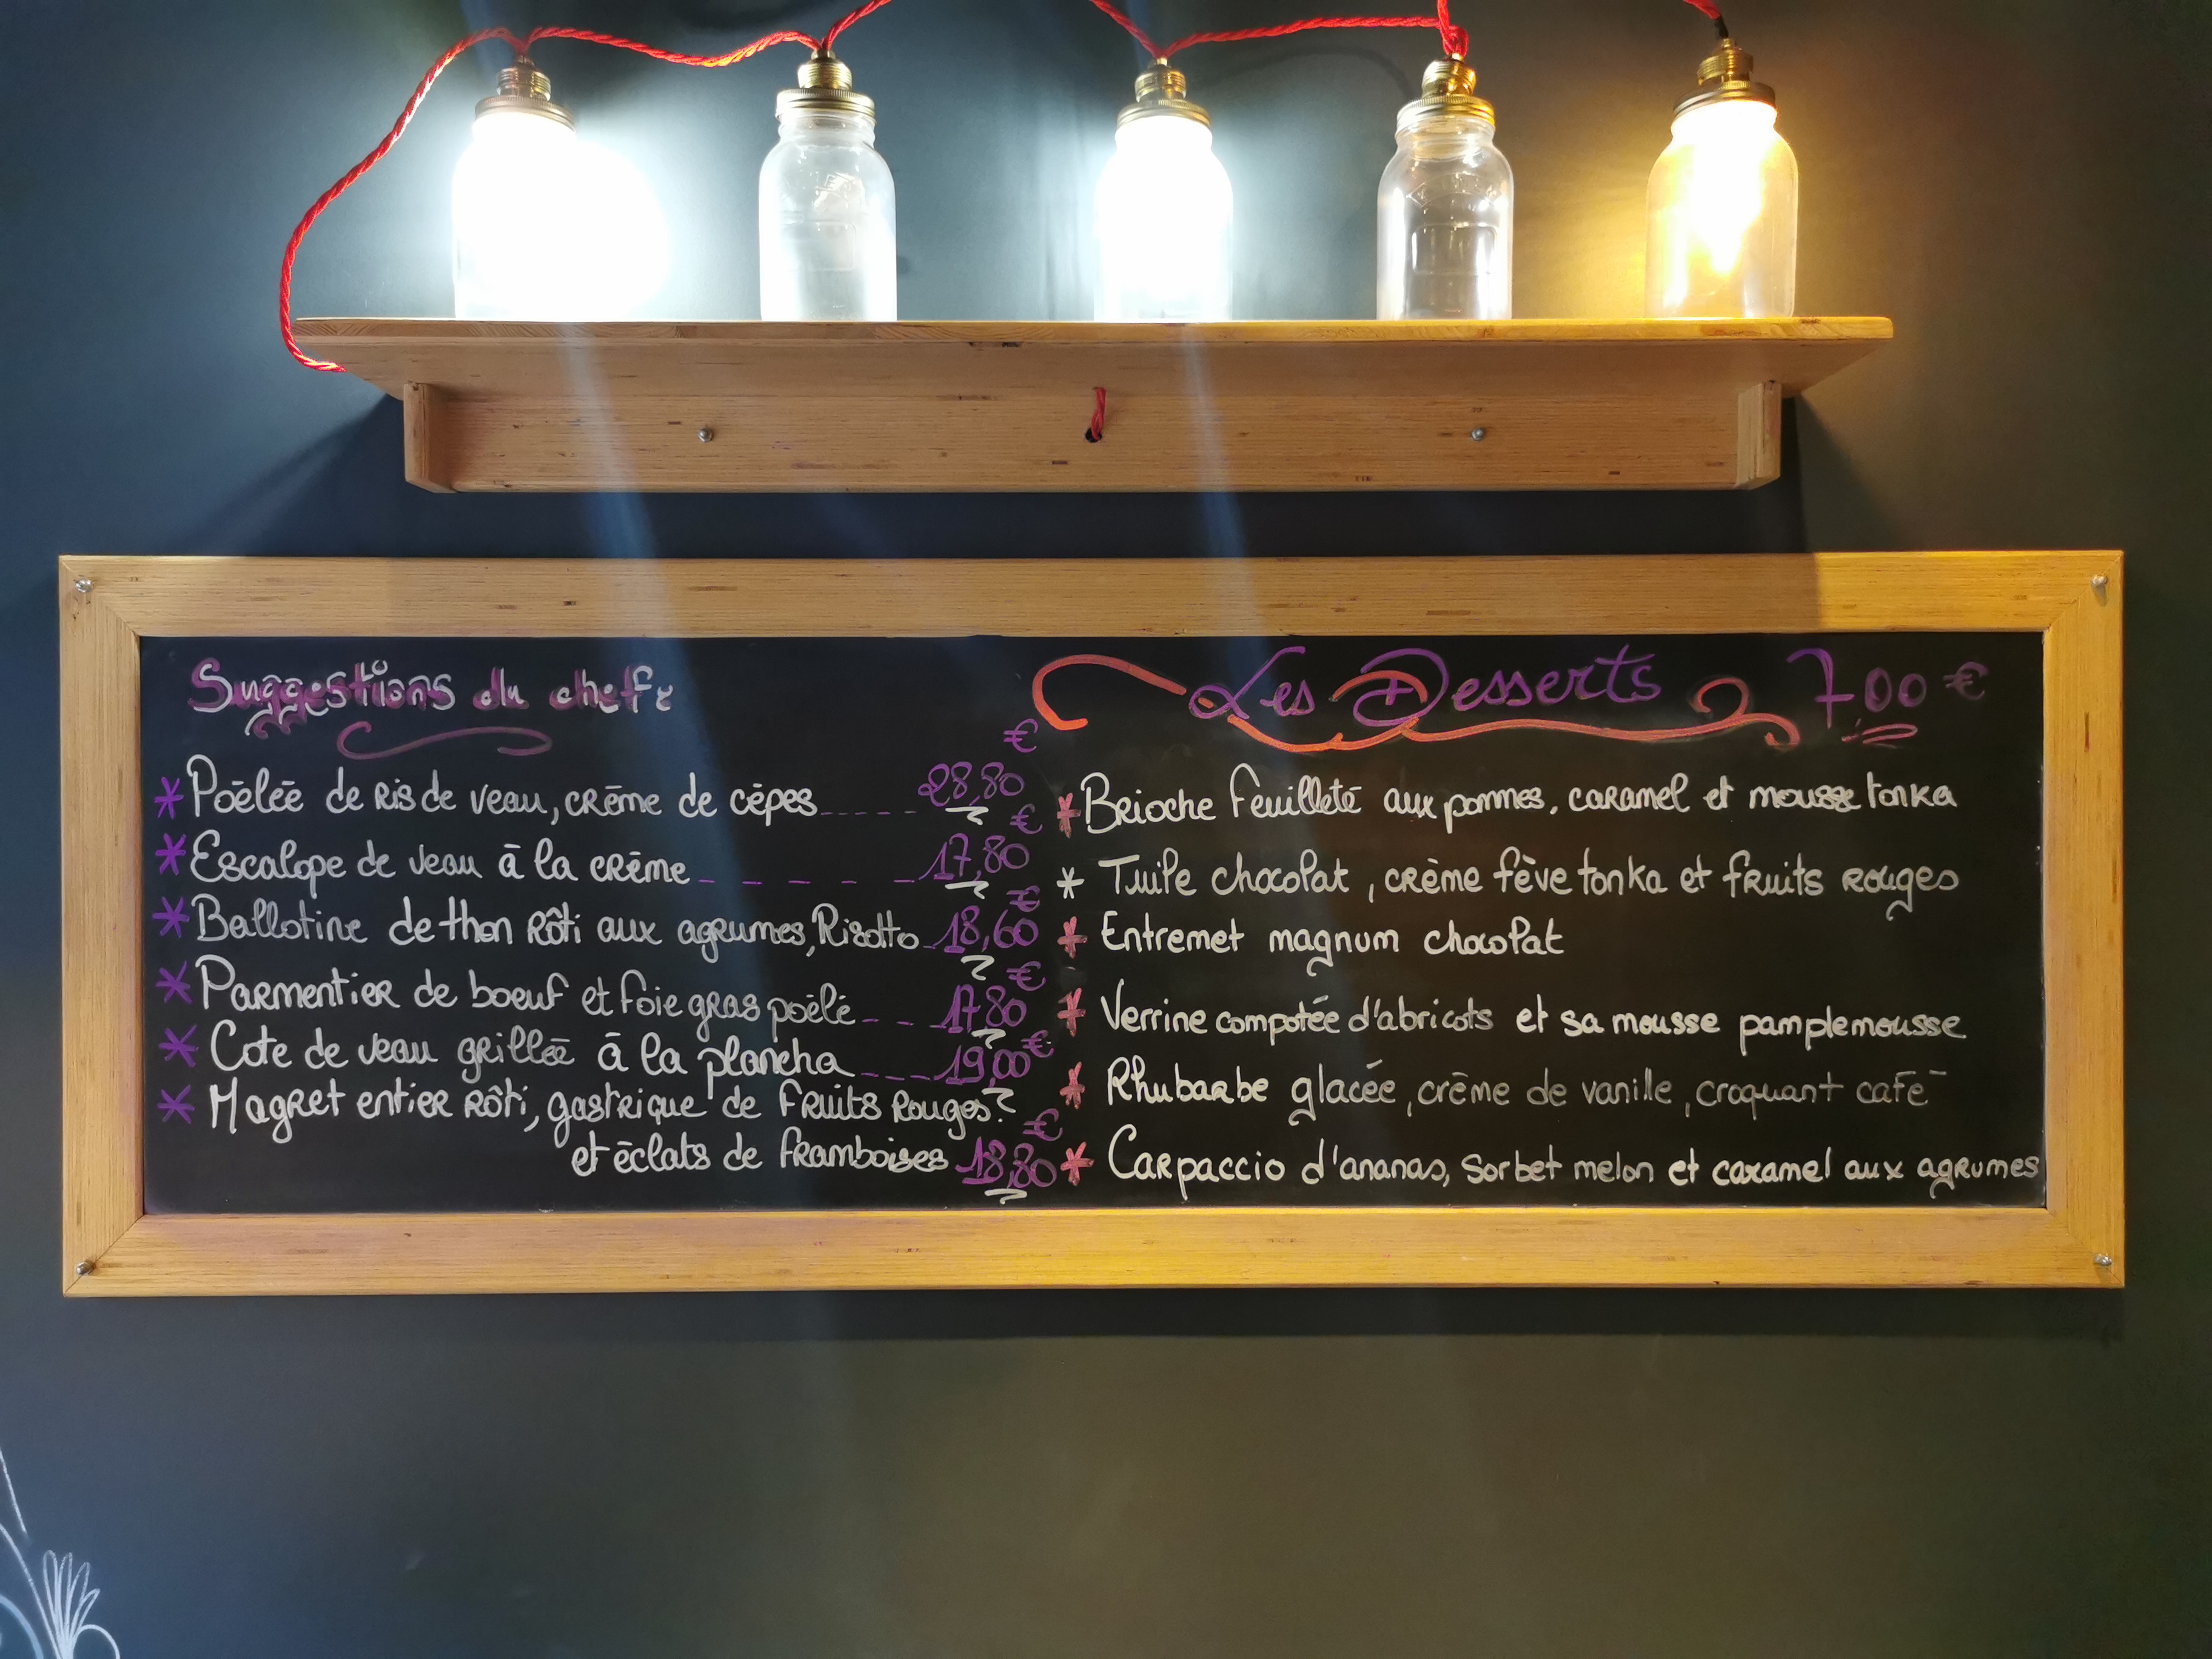 Suggestions du chef
€
* Poêlée de Ris de veau, crême de cêpes 28,80
€
* Escalope de veau à la crême 17,80
€
* Ballotine de thon Rôti aux agrumes, Risotto 18,60
€
* Parmentier de boeuf et foie gras poêlé 17,80
€
* Cote de veau grillée à la plancha 19,00
* Magret entier Rôti, gastrique de fruits Rouges
€
et éclats de framboises 18,80
Les Desserts 7,00 €
* Brioche feuilleté aux pommes, caramel et mousse tonka
* Tuile chocolat, crème fève tonka et fruits rouges
* Entremet magnum chocolat
* Verrine compotée d'abricots et sa mousse pamplemousse
* Rhubarbe glacée, crême de vanille, croquant café
* Carpaccio d'ananas, sorbet melon et caramel aux agrumes